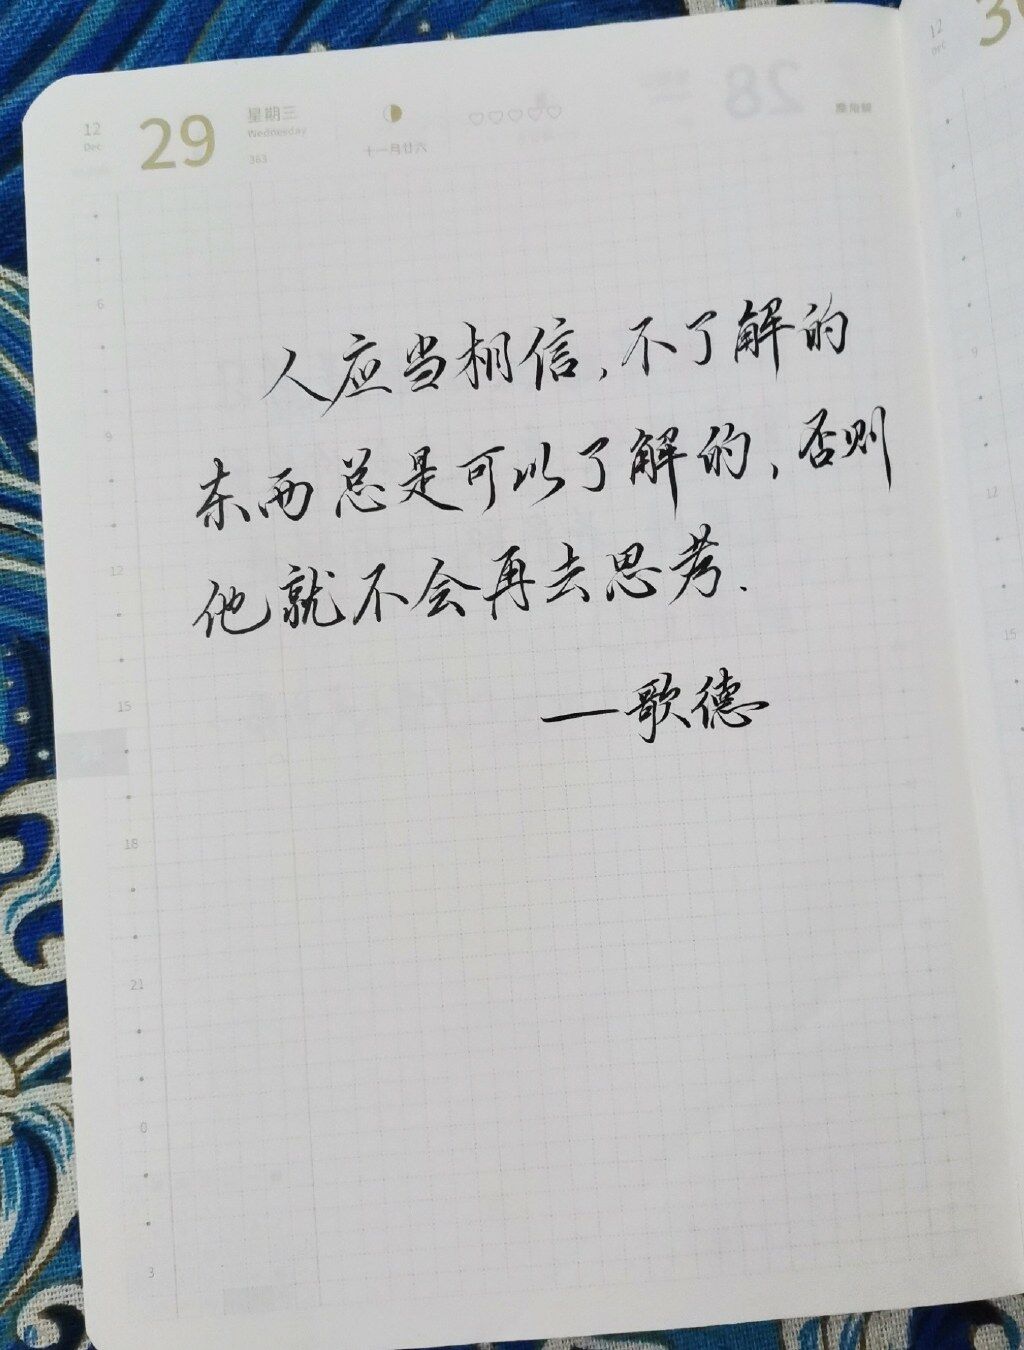 12
Dec
29
星期三
Wednesday
363
十一月廿六
12
Dec
人应当相信,不了解的
东西总是可以了解的,否则
他就不会再去思考.
—歌德
6
9
12
15
18
21
0
3
6
9
12
15